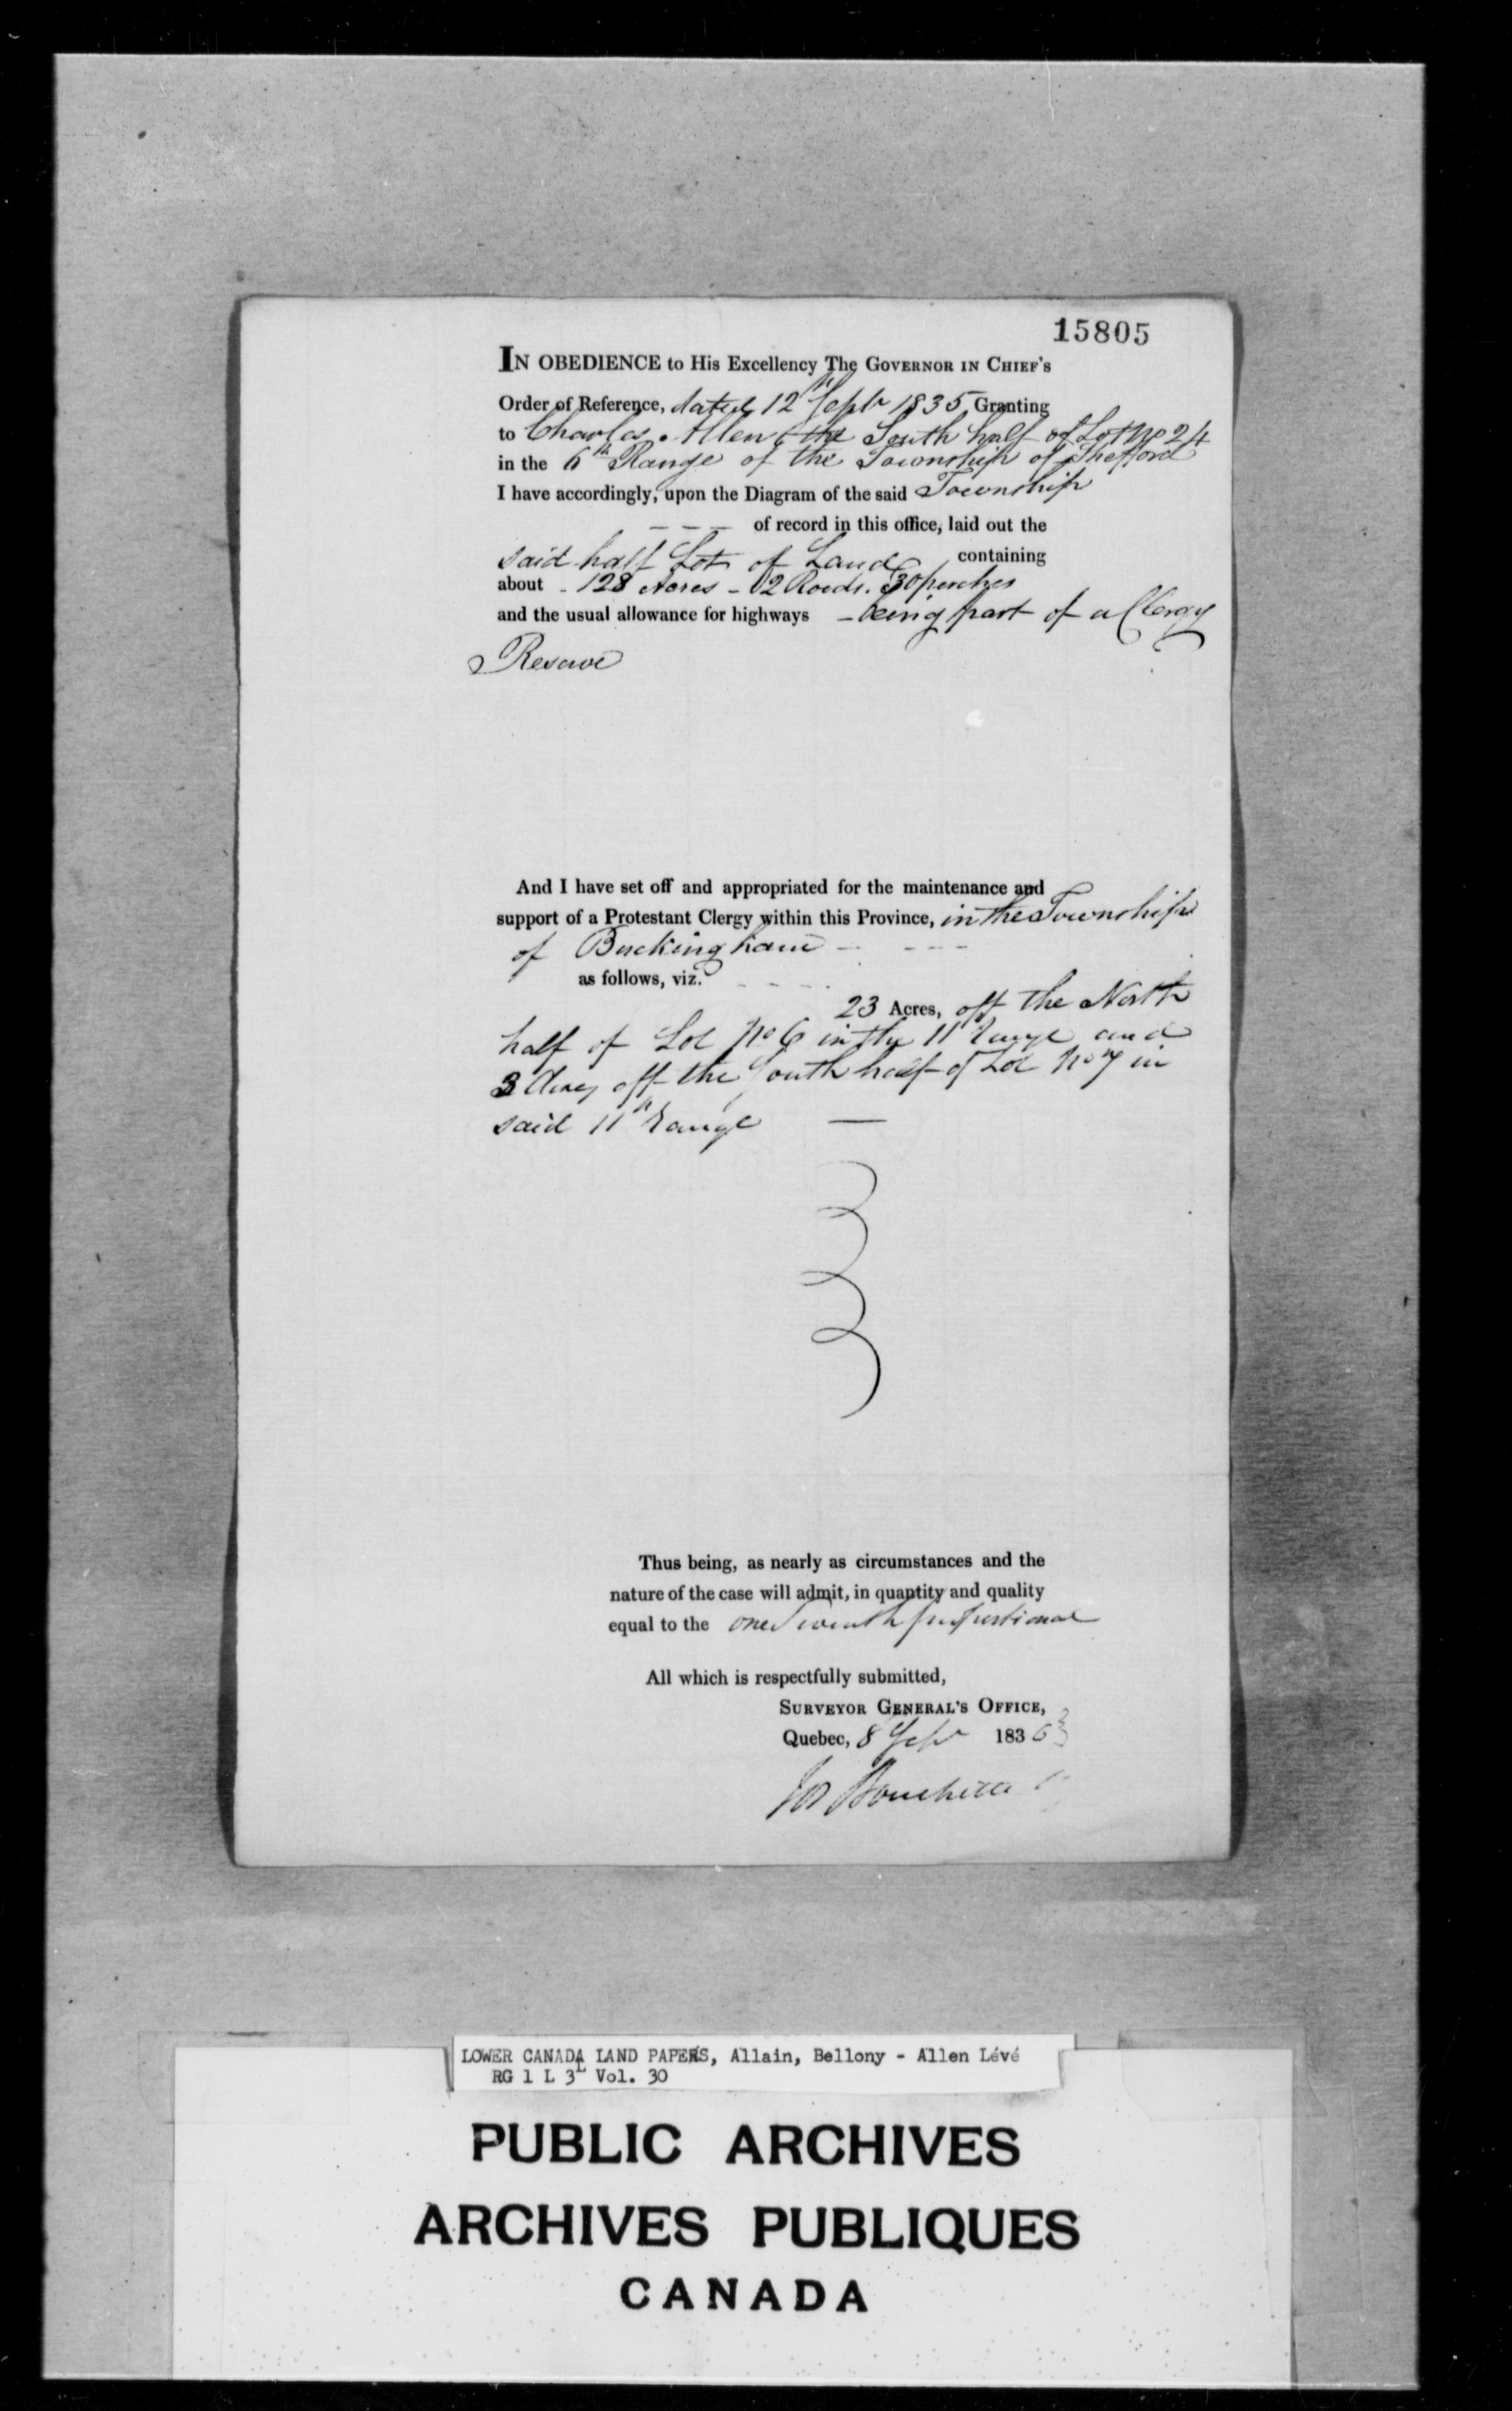 15805
IN OBEDIENCE to His Excellency The GOVERNOR IN CHIEF'S
Order of Reference, dated 12th Septr 1835 Granting
to Charles Allen the South half of Lot No 24
in the 6th Range of the Township of Shefford
I have accordingly, upon the Diagram of the said Township
— — — of record in this office, laid out the
said half Lot of Land containing
about - 128 Acres - 02 Roods. 30 perches
and the usual allowance for highways - being part of a Clergy
Reserve
And I have set off and appropriated for the maintenance and
support of a Protestant Clergy within this Province, in the Township
of Buckingham - - - -
as follows, viz. - - - -
23 Acres, off the North
half of Lot No 6 in the 11th Range and
3 Acres off the South half of Lot No 7 in
said 11th Range —
Thus being, as nearly as circumstances and the
nature of the case will admit, in quantity and quality
equal to the one Seventh proportional
All which is respectfully submitted,
SURVEYOR GENERAL'S OFFICE,
Quebec, 8 Sepr 1836
Jos Bouchette
LOWER CANADA LAND PAPERS, Allain, Bellony - Allen Lévé
RG 1 L 3L Vol. 30
PUBLIC ARCHIVES
ARCHIVES PUBLIQUES
CANADA